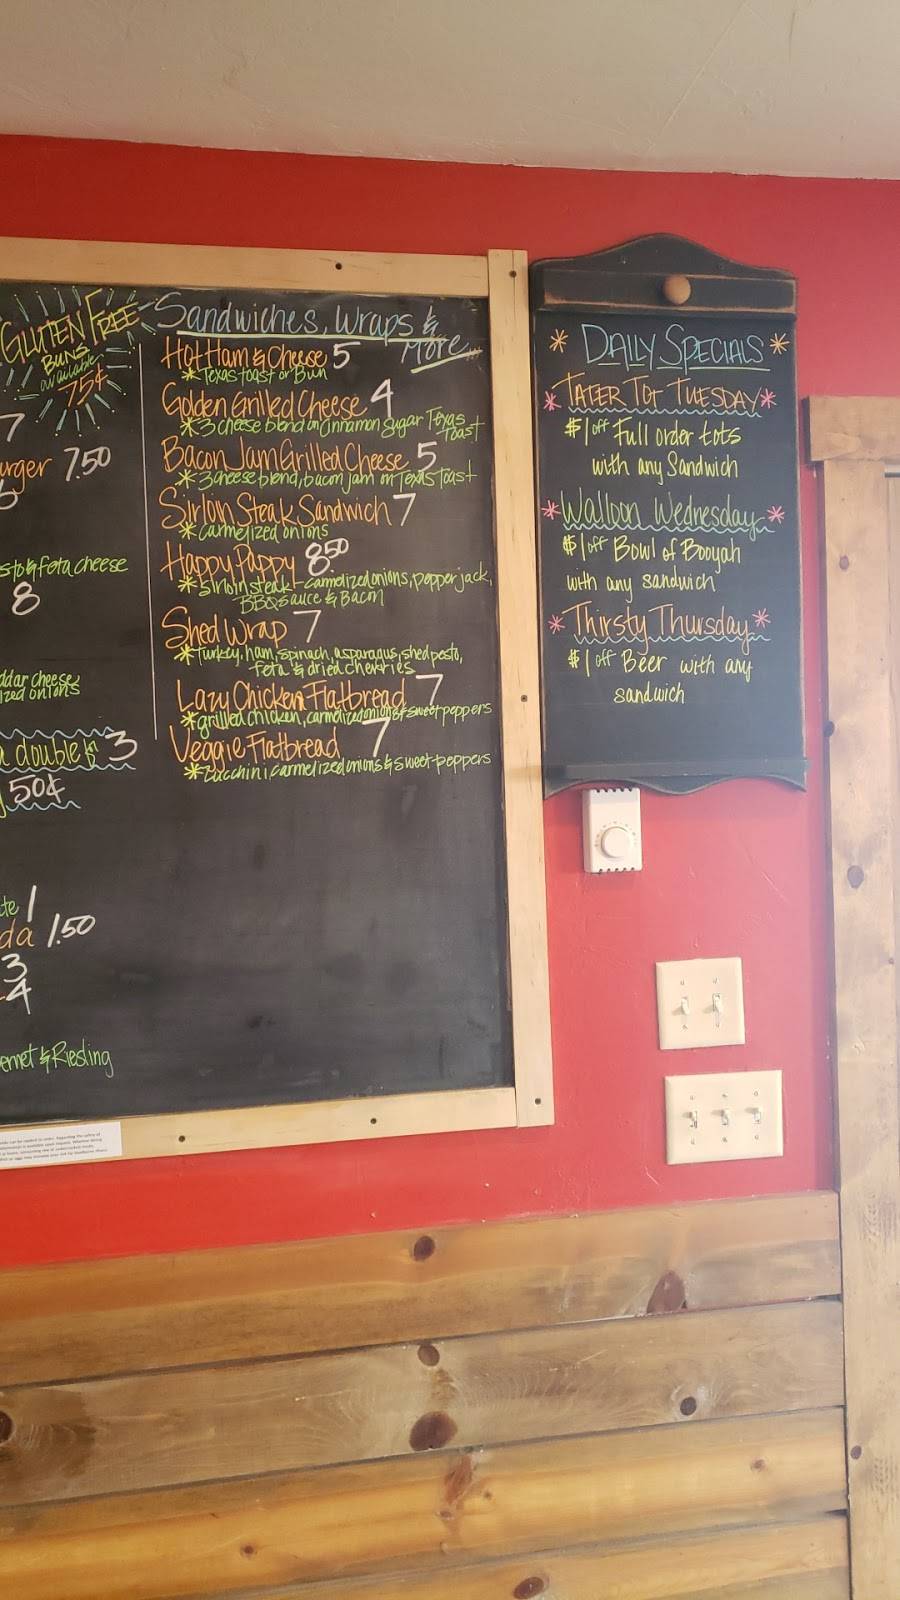 GLUTEN FREE
BUNS
available
75¢
7
urger 7.50
feta cheese
8
ddar cheese,
ized onions
a double for 3
50¢
1
da 1.50
3
4
ernet & Riesling
Sandwiches, Wraps &
More...
Hot Ham & Cheese 5
*Texas toast or Bun
Golden Grilled Cheese 4
*3 cheese blend on Cinnamon Sugar Texas
Toast
Bacon Jam Grilled Cheese 5
*3 cheese blend, bacon jam on Texas Toast
Sirloin Steak Sandwich 7
*Carmelized onions
Happy Pappy 8.50
*Sirloin steak - carmelized onions, pepper jack,
BBQ sauce & Bacon
Shed Wrap 7
*Turkey, ham, spinach, asparagus, shed pesto,
feta & dried cherries
Lazy Chicken Flatbread 7
*grilled chicken, carmelized onions & sweet peppers
Veggie Flatbread 7
*Zucchini, carmelized onions & sweet peppers
* DAILY SPECIALS *
*TATER TOT TUESDAY*
$1 off Full order tots
with any Sandwich
*Walloon Wednesday*
$1 off Bowl of Booyah
with any sandwich
*Thirsty Thursday*
$1 off Beer with any
sandwich